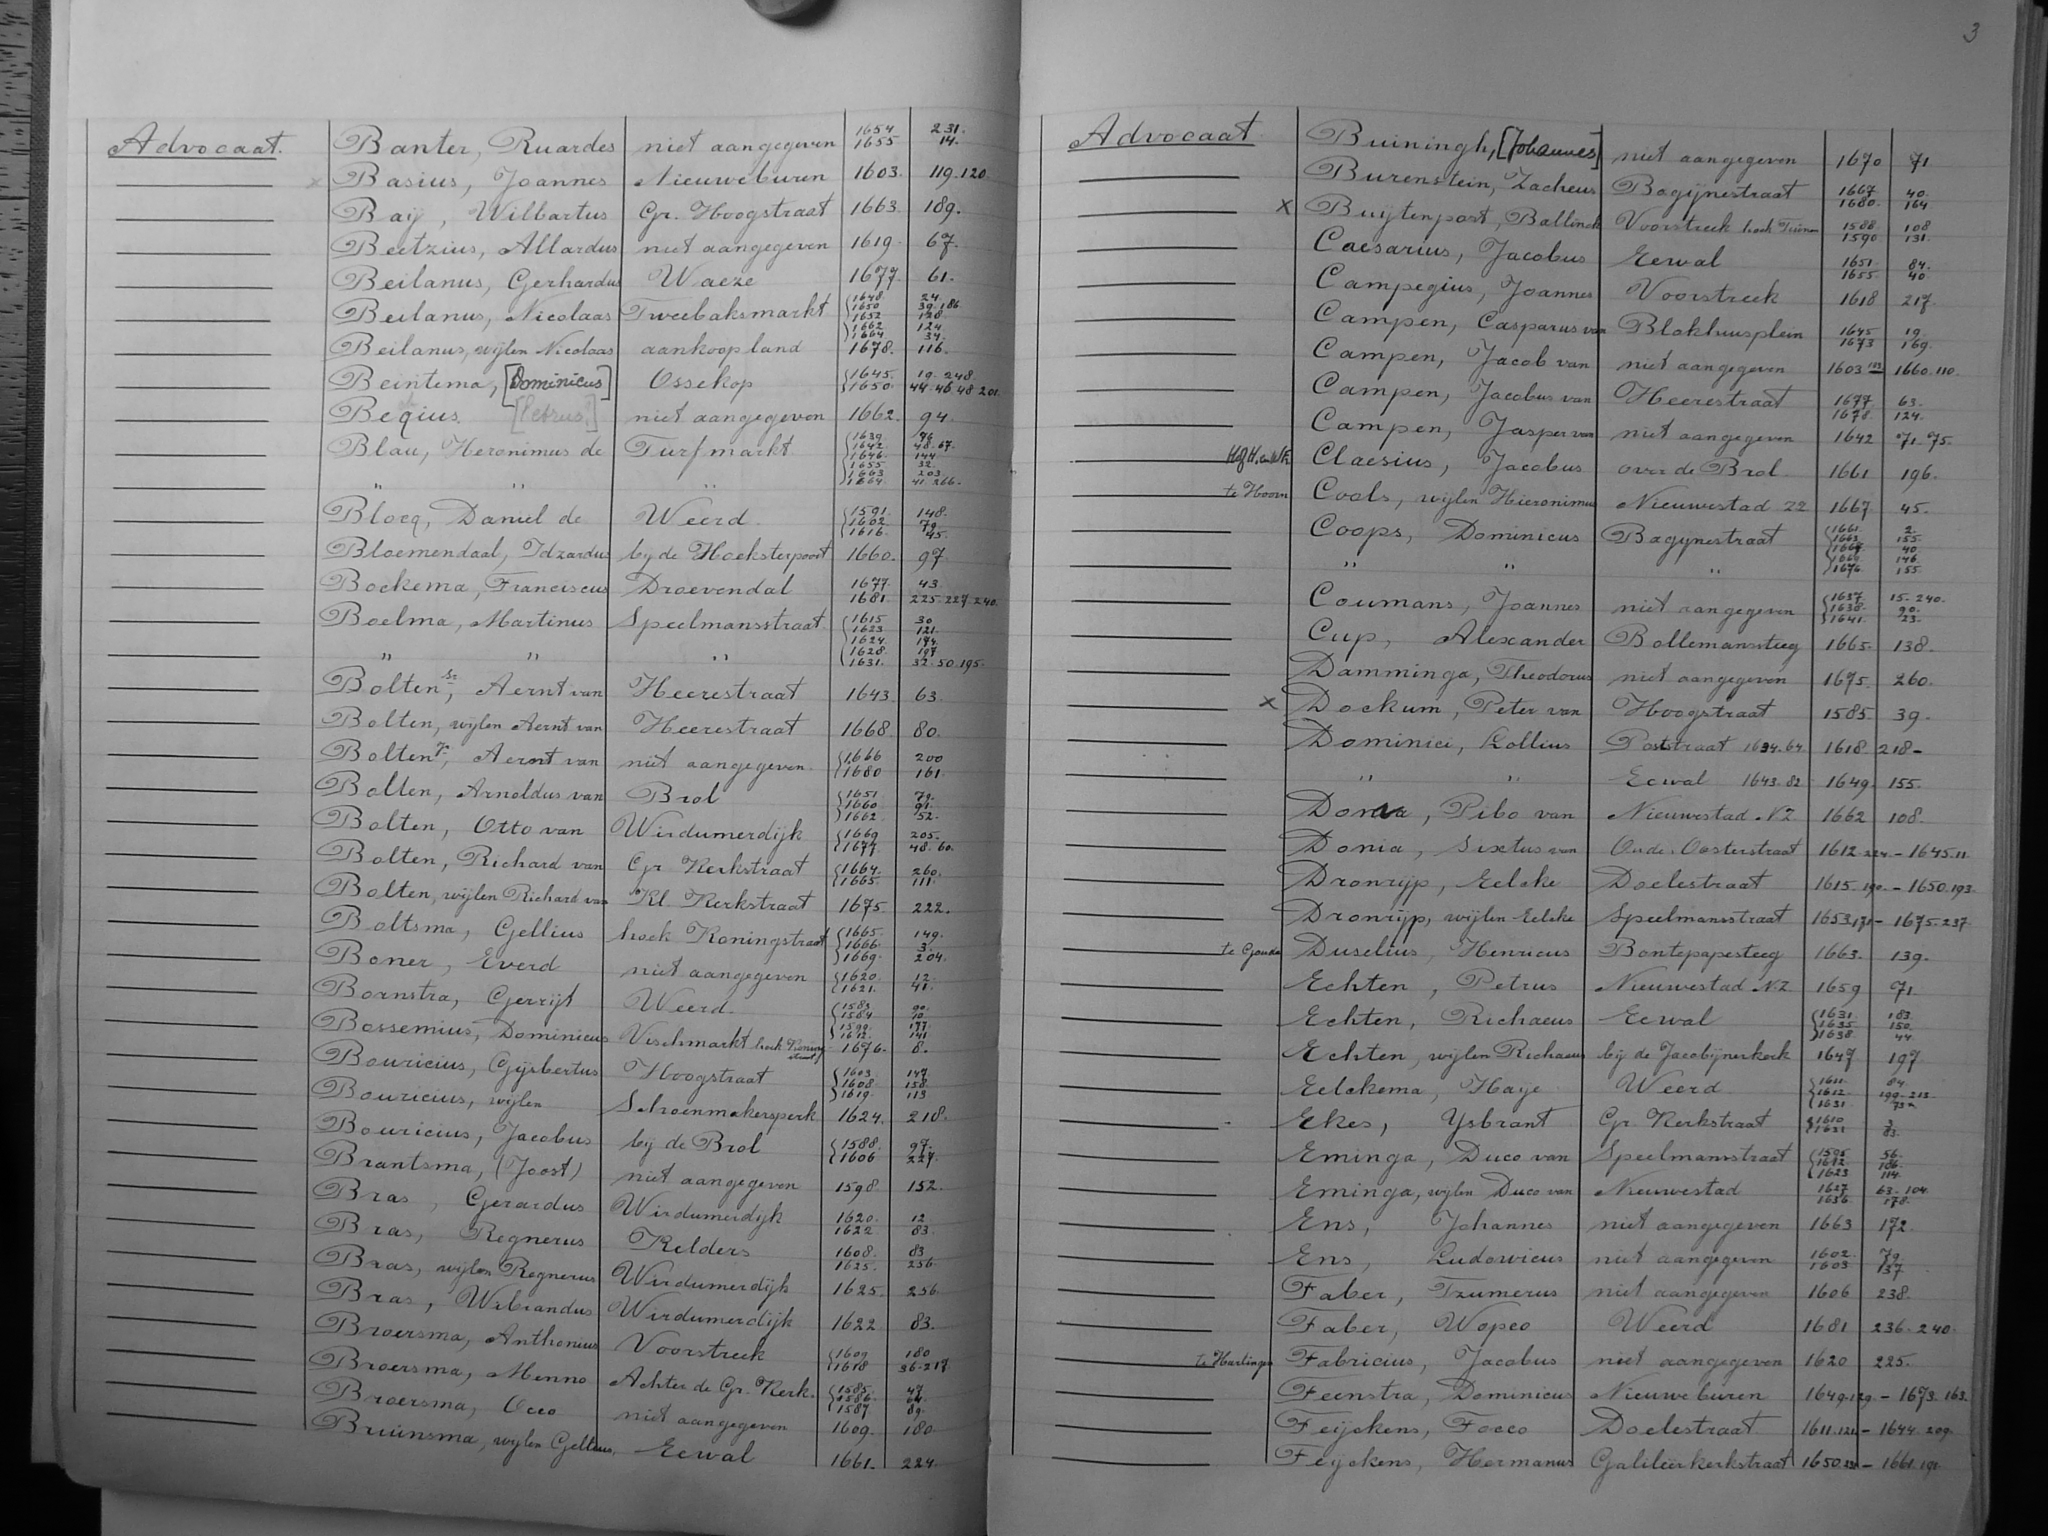 3
Advocaat. Banter, Ruardes niet aangegeven 1654 231.
1655 14.
x Basius, Joannes Nieuweburen 1603. 119.120
Baÿ, Wilbartus Gr. Hoogstraat 1663. 189.
Beetzius, Allardus niet aangegeven 1619. 67.
Beilanus, Gerhardus Waeze 1677. 61.
Beilanus, Nicolaas Tweebaksmarkt 1648. 24.
1650 39.186
1652 128
1662 124
1664 34.
Beilanus, wijlen Nicolaas aankoop land 1678. 116.
Beintema, [Dominicus] Ossekop 1645. 19.248.
1650. 44.46.48.201
Beqius. [Petrus.] niet aangegeven 1662. 94.
Blau, Heronimus de Turfmarkt 1639. 76
1642 48.67.
1646. 144
1655 32.
1663 203.
" " " 1664. 41.266.
Blocq, Daniel de Weerd 1591. 148.
1602. 79.
1616. 45.
Bloemendaal, Idzardus bij de Hoeksterpoort 1660. 97
Bockema, Franciscus Droevendal 1677. 43.
1681. 225.227.240.
Boelma, Martinus Speelmansstraat 1615 30
1623 121.
1624. 194.
1628. 197
" " " 1631. 32.50.195.
Bolten Sr, Aernt van Heerestraat 1643 63.
Bolten, wijlen Aernt van Heerestraat 1668. 80.
Bolten Jr, Aernt van niet aangegeven. 1666 200
1680 161.
Bolten, Arnoldus van Brol 1651 79.
1660. 91.
1662. 52.
Bolten, Otto van Wirdumerdijk 1669 205.
1677. 48.60.
Bolten, Richard van Gr Kerkstraat 1664. 260.
1665. 111.
Bolten, wijlen Richard van Kl. Kerkstraat 1675. 222.
Boltsma, Gellius hoek Koningstraat 1665. 149.
1666. 3.
1669. 204.
Boner, Everd niet aangegeven 1620. 12.
1621. 41.
Bornstra, Gerrijt Weerd. 1583. 90.
1584. 70.
Bossemius, Dominicus Vischmarkt hoek Koningstraat 1676. 8.
Bouricius, Gijsbertus Hoogstraat 1603. 147.
1608. 158
1619. 113
Bouricius, wijlen Schoenmakersperk 1624. 218.
Bouricius, Jacobus bij de Brol 1588. 97.
1606 227.
Brantsma, (Joost) niet aangegeven 1598. 152.
Bras, Gerardus Wirdumerdijk 1620. 12
1622 83.
Bras, Regnerus Kelders 1608. 83
1625. 256.
Bras, wijlen Regnerus Wirdumerdijk 1625. 256.
Bras, Wibrandus Wirdumerdijk 1622 83.
Broersma, Anthonius Voorstreek 1609 180
1618 36.217
Broersma, Menno Achter de Gr. Kerk. 1585. 47
1586. 64.
1587 89.
Broersma, Occo niet aangegeven 1609. 180.
Bruinsma, wijlen Gellius. Eewal 1661. 224.
Advocaat. Buiningh, [Johannes] niet aangegeven 1670 71
Burenstein, Zacheus Bagijnestraat 1667 40.
1680. 164
x Buijtenpost, Ballinck Voorstreek hoek 1588 108
1590 131.
Caesarius, Jacobus Eewal 1651. 84.
1655 40.
Campegius, Joannes Voorstreek 1618 217.
Campen, Casparus van Blokhuusplein 1645 19.
1673 169.
Campen, Jacob van niet aangegeven 1603 1660.110.
Campen, Jacobus van Heerestraat 1677 63.
1678. 124.
Campen, Jasper van niet aangegeven 1642 71.75.
Claesius, Jacobus over de Brol 1661 196.
te Hoorn Cools, wijlen Hieronimus Nieuwestad ZZ 1667 45.
Coops, Dominicus Bagijnestraat 1661. 2.
1663. 155.
1664 40.
1666 146.
" " " 1676. 155
Coumans, Joannes niet aangegeven 1637. 15.240.
1638. 90.
1641. 23.
Cup, Alexander Bollemanssteeg 1665. 138.
Damminga, Theodorus niet aangegeven 1675. 260.
x Dockum, Peter van Hoogstraat 1585. 39.
Dominici, Lollius Poststraat 1634.64 1618 218-
" " Eewal 1643.82 1649 155.
Donia, Pibo van Nieuwestad NZ 1662 108.
Donia, Sixtus van Oude Oosterstraat 1612.224.-1645.11
Dronrijp, Eelcke Doelestraat 1615.190.-1650.193.
Dronrijp, wijlen Eelcke Speelmansstraat 1653.171-1675.237
te Gouda Duselius, Henricus Bontepapesteeg 1663. 139.
Echten, Petrus Nieuwestad NZ 1659 71
Echten, Richaeus Eewal 1631. 183.
1635. 150.
1638 44.
Echten, wijlen Richaeus bij de Jacobijnerkerk 1647 197
Eelckema, Haije Weerd 1611. 84.
1612. 199-213.
1631.
Ekes, Ysbrant Gr. Kerkstraat 1610 3
83.
Eminga, Duco van Speelmansstraat 1595 56.
1612. 186.
1623 114.
Eminga, wijlen Duco van Nieuwestad 1627 63.104.
1636. 178.
Ens, Johannes niet aangegeven 1663 172.
Ens, Ludowicus niet aangegeven 1602. 79.
1603 137
Faber, Tzumerus niet aangegeven 1606 238.
Faber, Wopco Weerd 1681 236.240.
te Harlingen Fabricius, Jacobus niet aangegeven 1620 225.
Feenstra, Dominicus Nieuweburen 1649.129.-1673.163.
Feijckens, Focco Doelestraat 1611.121-1644.209.
Feijckens, Hermanus Galileërkerkstraat 1650 - 1661.191.